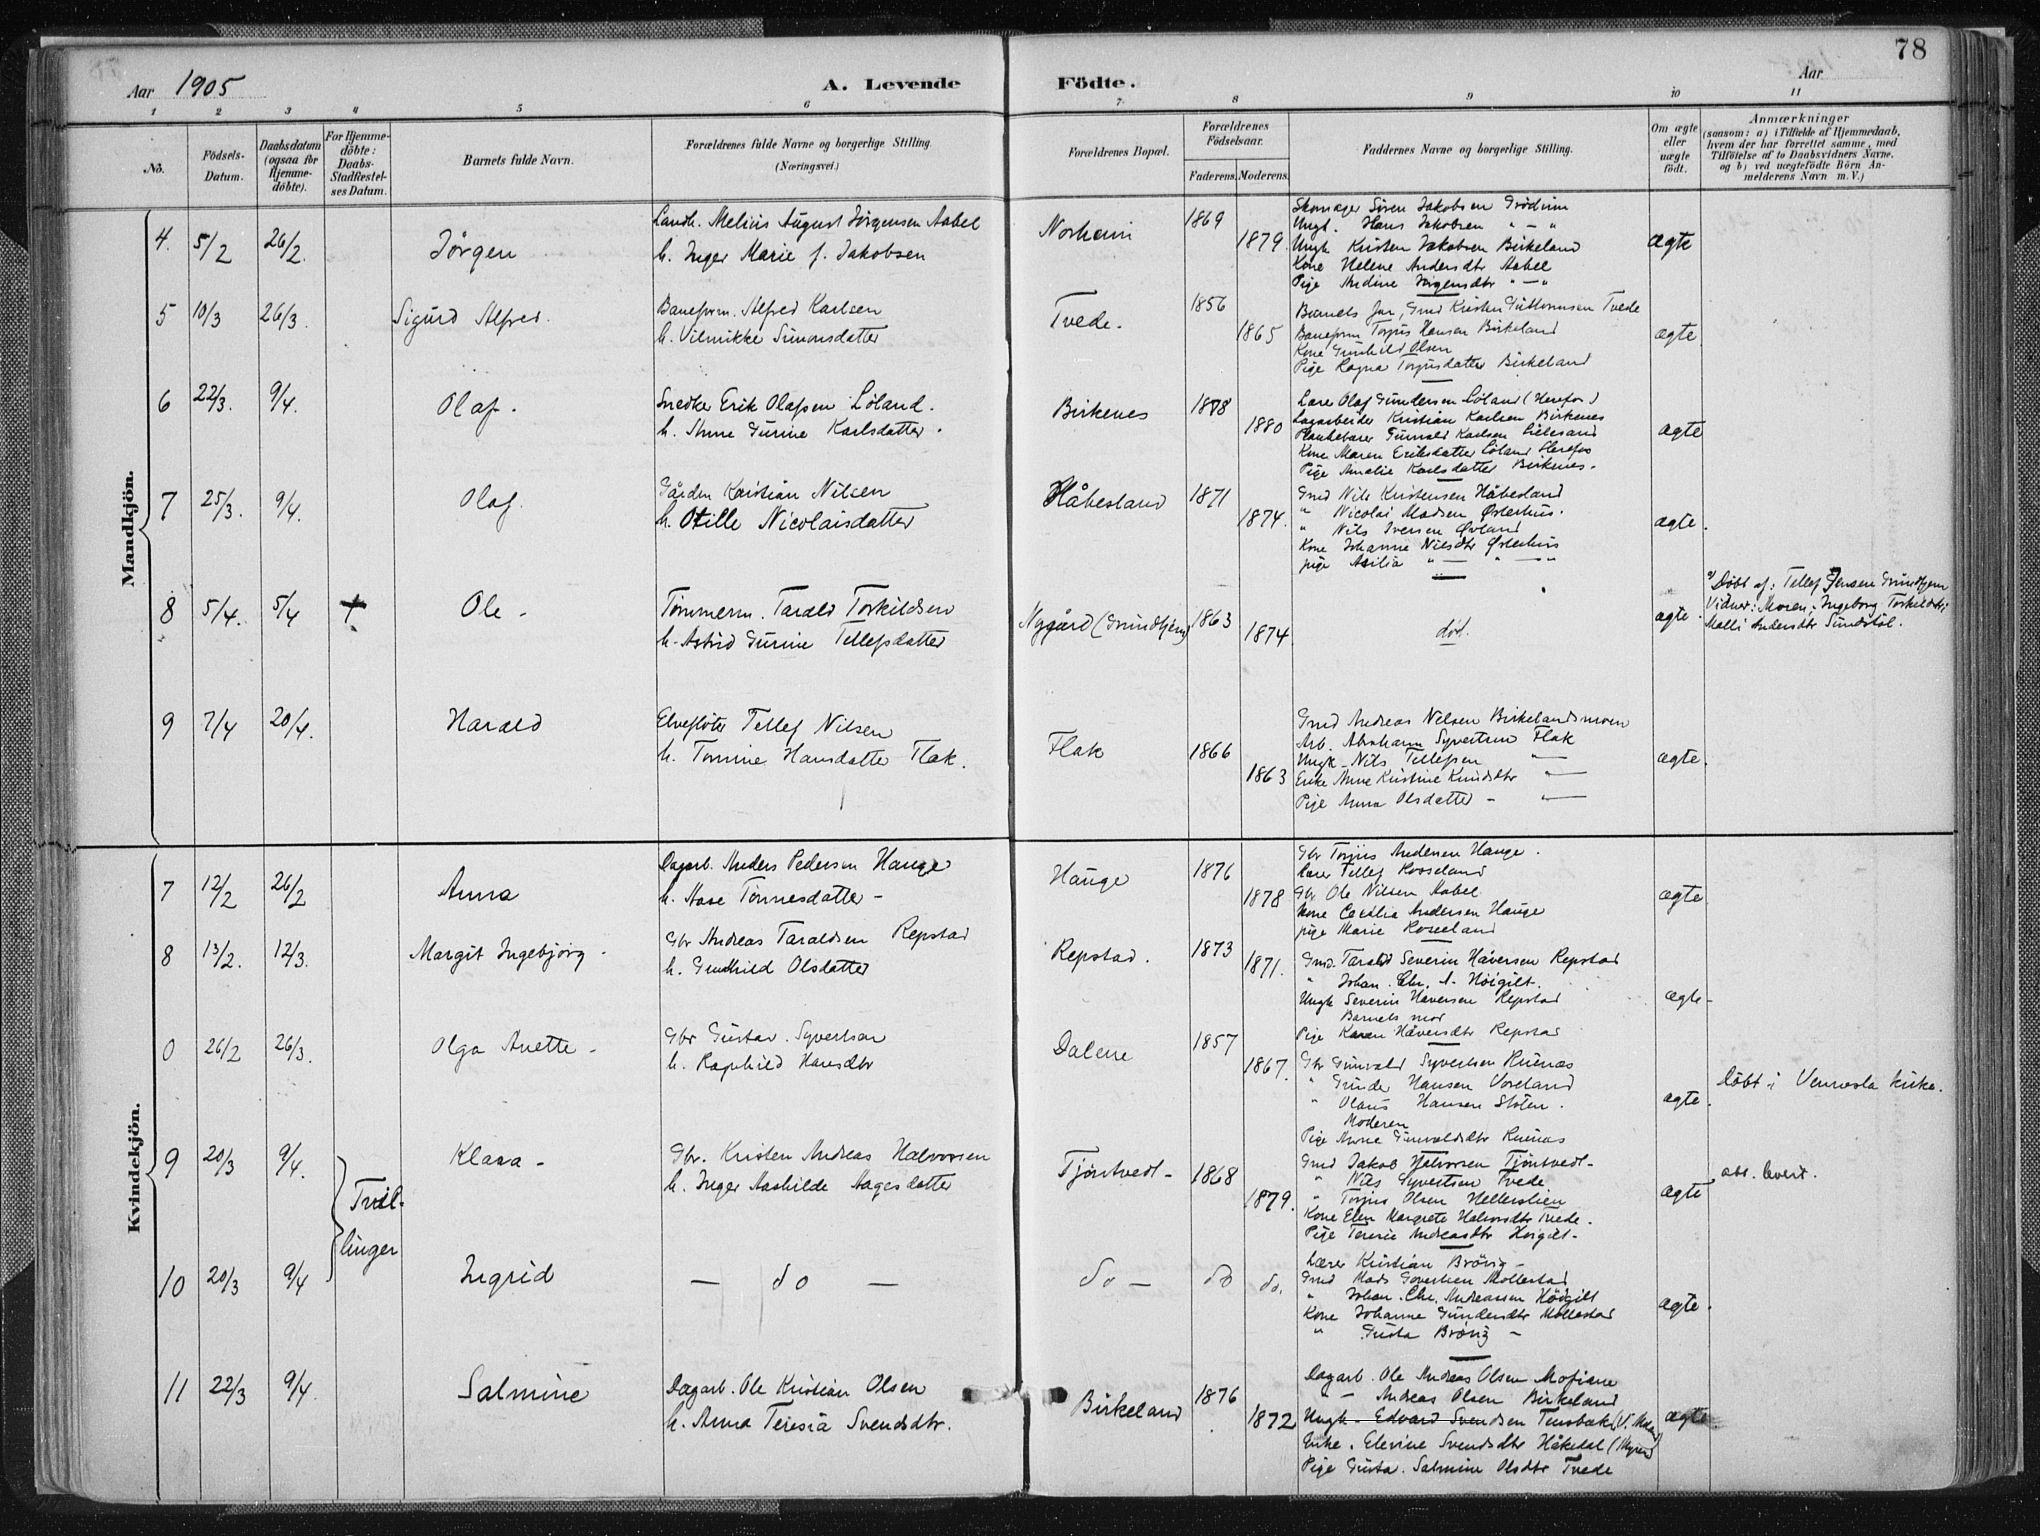 78
Aar 1905
A. Levende
Födte.
Aar
1 2 3 4 5 6 7 8 9 10 11
No.
Födsels-Datum.
Daabsdatum (ogsaa for Hjemme-döbte).
For Hjemme-döbte: Daabs-Stadfestel-ses Datum.
Barnets fulde Navn.
Forældrenes fulde Navne og borgerlige Stilling. (Næringsvei.)
Forældrenes Bopæl.
Forældrenes Födselsaar.
Faderens. Moderens.
Faddernes Navne og borgerlige Stilling.
Om ægte eller uægte födt.
Anmærkninger
(saasom: a) i Tilfælde af Hjemmedaab, hvem der har forrettet samme, med Tilföielse af to Daabsvidners Navne, og b) ved uægtefödte Börn An-melderens Navn m. V.)
Mandkjön.
4. 5/2 26/2. Jörgen
Landb. Melius August Jörgensen Aabel
h. Inger Marie f. Jakobsen
1869
1879.
Skomager Sören Jakobsen
Ungk. Hans Jakobsen " — "
Ungk Kristen Jakobsen Birkeland
Kone Helene Andersdtr Aabel
Pige Andine Jörgensdtr " — "
ægte
5 10/3 26/3. Sigurd Alfred.
Baneform. Alfred Karlsen
h. Vilmikke Simonsdatter
Tvede.
1856
1865
Barnets far, Gmd Kristen Guttormsen Tvede
Baneform Torjus Hansen Birkeland
Kone Gunhild Olsen
Pige Ragna Torjusdatter Birkeland
ægte
6 22/3. 9/4. Olaf.
Snedker Erik Olafsen Löland.
h. Anne Gurine Karlsdatter.
Birkenes
1878
1880
Lærer Olaf Gundersen Löland (Herefos)
Kristian Karlsen Birkenes
Gunvald Karlsen Lillesand
Kone Maren Eriksdatter Löland Herefos
Pige Amalie Karlsdatter Birkenes.
ægte
7 25/3. 9/4. Olaf.
Gårdm Kristian Nilsen
h. Otille Nicolaisdatter
Håbesland
1871
1874.
Gmd Nils Kristensen Håbesland
" Nicolai Madsen Østerhus.
" Nils Iversen Øvland
Kone Johanne Nilsdtr Østerhus
pige Asilia " — " — "
ægte.
8 5/4. 5/4 + Ole -
Tömmerm. Tarald Torkildsen
h. Astrid Gurine Tellefsdatter
Nygård (Grundtjern)
1863
1874.
död.
ægte.
a/ Döbt af: Tellef Jensen Grundtjern
Vidner: Moren: Ingeborg Torkildsdtr.
Malli Andersdtr Sundstöl.
9 7/4 20/4. Harald
Elveflöter Tellef Nilsen
h. Tomine Hansdatter Flak.
Flak
1866
1863
Gmd Andreas Nilsen Birkelandsmoen
Arb. Abraham Syvertsen Flak
Ungk. Nils Tellefsen —"—
Enke Anne Kristine Knudsdtr —"—
Pige Anna Olsdatter - —"—
ægte.
Kvindekjön.
7 12/2 26/2 Anna
Dagarb. Anders Pedersen Hauge
h. Aase Tönnesdatter -
Hauge
1876
1878
Gbr Torjus Andersen Hauge.
Lærer Tellef Rosseland
Gbr Ole Nilsen Aabel
Kone Cecilia Andersen Hauge
pige Marie Rosseland
ægte
8 13/2. 12/3. Margit Ingebjörg.
Gbr Andreas Taraldsen Repstad
h. Gunhild Olsdatter
Repstad.
1873
1871.
Gmd. Tarald Severin Håversen Repstad
" Johan. Chr. A. Höigilt.
Ungk Severin Haversen Repstad
Barnets mor
Pige Karen Håversdtr Repstad
ægte-
0 26/2 26/3. Olga Anette -
Gbr Gustav. Syvertsen
h. Ragnhild Hansdtr
Dalene
1857
1867.
Gbr Gunvald Syvertsen Ruenæs
" Gunder Hansen Voreland
" Olaus Hansen Stöten.
Moderen
Pige Anne Gunvaldsdtr Ruenæs
ægte.
Döbt i Vennesla kirke.
9 20/3 9/4. Klara -
Gbr. Kristen Andreas Halvorsen
h. Inger Aashilde Aagesdatter
Tjöntvedt-
1868
1879.
Gmd Jakob Halvorsen Tjöntvedt-
" Nils Syvertsen Tvede
" Torjus Olsen Hellerslien
Kone Elen Margrete Halvorsdtr Tvede.
Pige Terese Andreasdtr Höigilt-
ægte
Tvil-
linger
10 20/3 9/4 Ingrid
— do —
do —
do
do.
Lærer Kristian Brövig-
Gmd Mads Govertsen Mollestad
" Johan. Chr. Andreassen Höigilt
Kone Johanne Gundersdtr Mollestad
" Gusta Brövig -
ægte.
11 22/3 9/4. Salmine
Dagarb. Ole Kristian Olsen
h. Anna Teresia Svendsdtr.
Birkeland
1876
1872
Dagarb. Ole Andreas Olsen Mofiane
" — Andreas Olsen Birkeland
Ungk. Edvard Svendsen
Enke. Elevine Svendsdtr Håkedal
Pige Gusta. Salmine Olsdtr Tvede
ægte